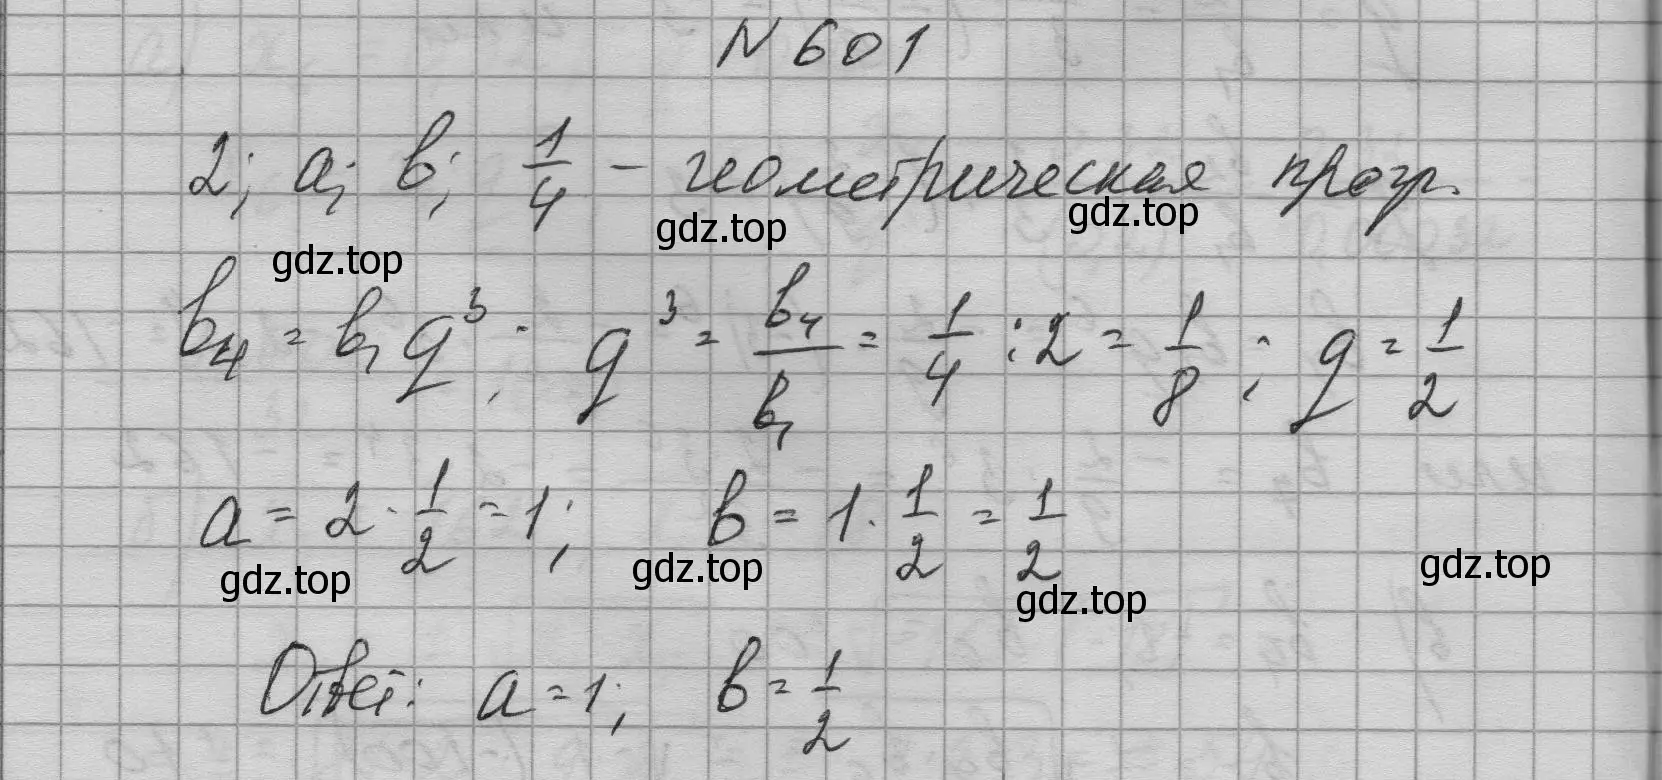 N 601
2; a; b; 1/4 – геометрическая прогр.
gdz.top gdz.top gdz.top
b₄ = b₁q³; q³ = b₄/b₁ = 1/4 : 2 = 1/8; q = 1/2
a = 2 · 1/2 = 1; b = 1 · 1/2 = 1/2
gdz.top gdz.top gdz.top gdz.top
Ответ: a = 1; b = 1/2